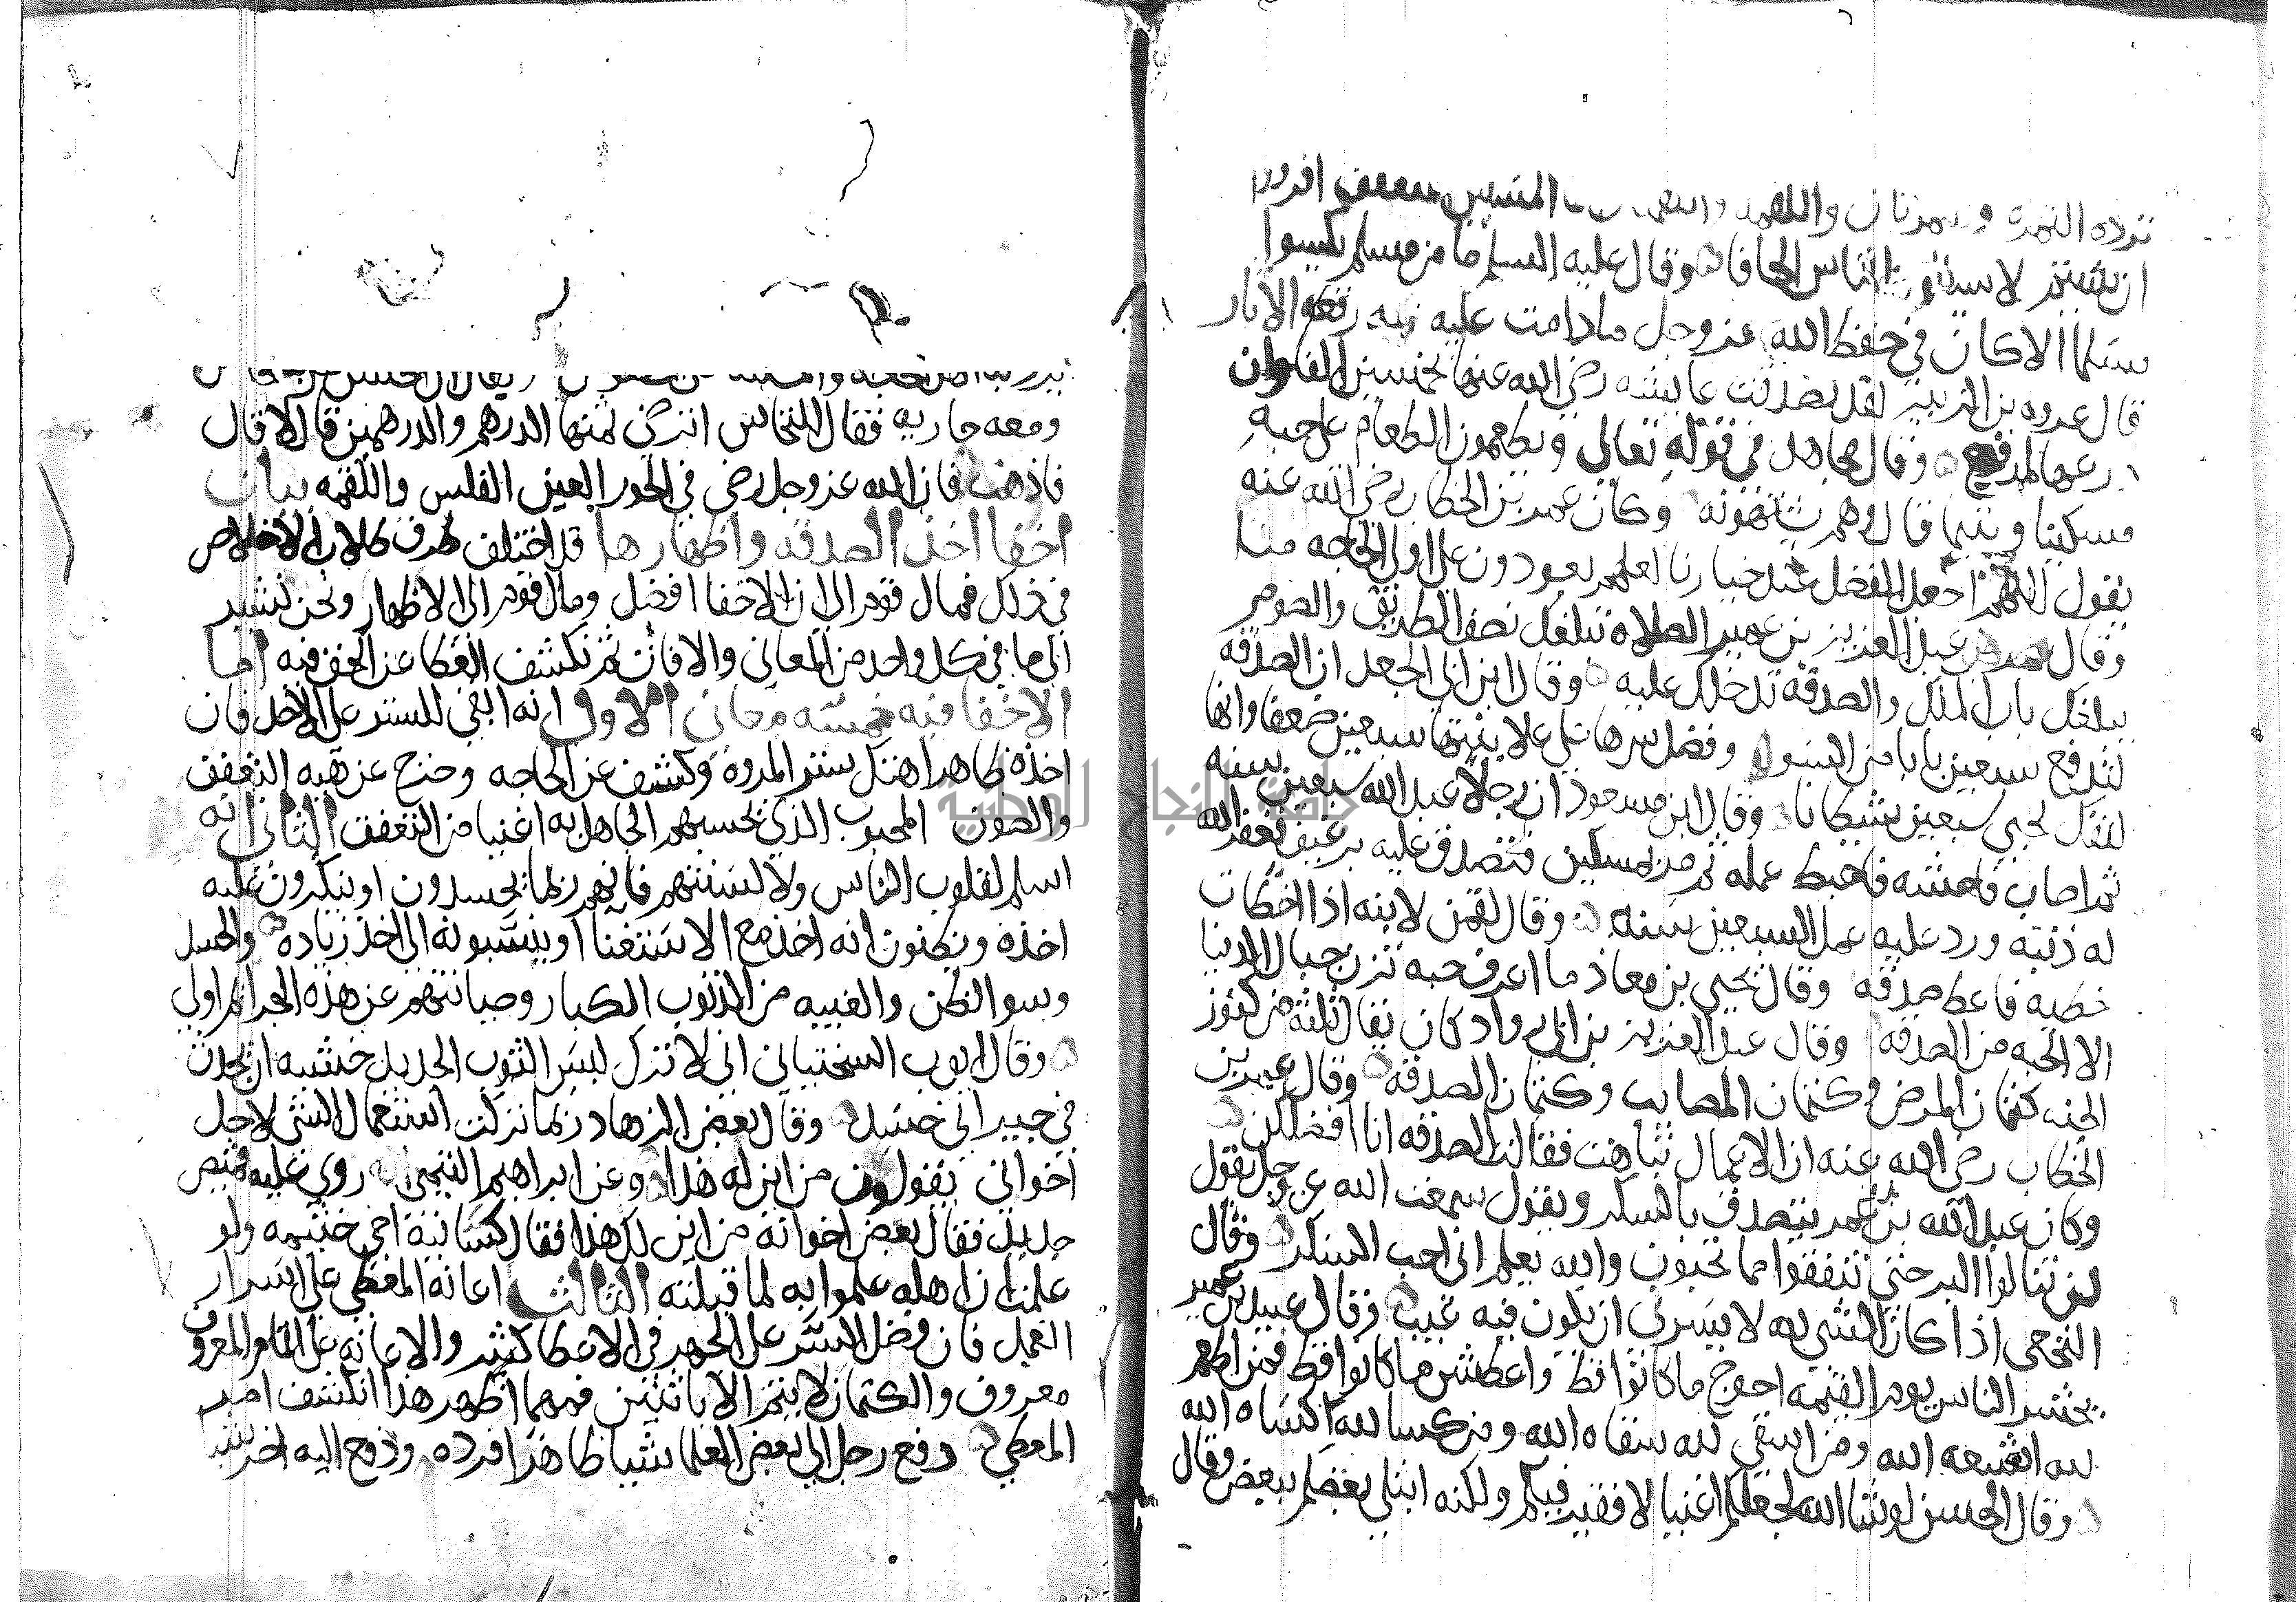 ترده التمره والتمرتان واللقمه المتعفف اقروا
ان شيتم لا يسئلون الناس الحافا وقال عليه السلم ما من مسلم يكسوا
مسلما الا كان في حفظ الله عز وجل ما دامت عليه منه رقعه الاثار
قال عروه بن الزبير لقد تصدقت عايشه رضي الله عنها بخمسين الفا وان
درعها لمرقع وقال مجاهد في قوله تعالى ويطعمون الطعام على حبه
مسكينا ويتيما قال وهم يشتهونه وكان عمر بن الخطاب رضي الله عنه
يقول اللهم اجعل الفضل عند خيارنا لعلهم يعودون على اولي الحاجه منا
وقال عمر بن عبد العزيز بن عمير الصلاه تبلغك نصف الطريق والصوم
يبلغك باب الملك والصدقه تدخلك عليه وقال ابن ابي الجعد ان الصدقه
لتدفع سبعين بابا من السو وفضل سرها على علانيتها سبعين ضعفا وانها
لتفك لحيي سبعين شيطانا وقال ابن مسعود ان رجلا عبد الله سبعين سنه
ثم اصاب فاحشه فاحبط عمله ثم مر بمسكين فتصدق عليه برغيف فغفر الله
له ذنبه ورد عليه عمل السبعين سنه وقال لقمن لابنه اذا اخطات
خطيه فاعط صدقه وقال يحيى بن معاذ ما اعرف حبه تزن جبال الدنيا
الا الحبه من الصدقه وقال عبد العزيز بن ابي رواد كان يقال ثلثه من كنوز
الجنه كتمان المرض وكتمان المصايب وكتمان الصدقه وقال عمر بن
الخطاب رضي الله عنه ان الاعمال تباهت فقالت الصدقه انا افضلكن
وكان عبد الله بن عمر يتصدق بالسكر ويقول سمعت الله عز وجل يقول
لن تنالوا البر حتى تنفقوا مما تحبون والله يعلم اني احب السكر وقال
النخعي اذا كان الشي لله لا يسرني ان يكون فيه عيب وقال عبيد بن عمير
يحشر الناس يوم القيمه اجوع ما كانوا قط واعطش ما كانوا قط فمن اطعم
لله اشبعه الله ومن اسقى لله سقاه الله ومن كسا لله اكساه الله
وقال الحسن لو شا الله لجعلكم اغنيا لا فقير فيكم ولكنه ابتلى بعضكم ببعض وقال
ومعه جاريه فقال للنخاس اترضى ثمنها الدرهم والدرهمين قال لا قال
فاذهب فان الله عز وجل رضي في الحور العين الفلس واللقمه بيان
اخفا اخذ الصدقه واظهارها قد اختلف طرق طلاب الاخلاص
في ذلك فمال قوم الى ان الاخفا افضل ومال قوم الى الاظهار ونحن نشير
الى ما في كل واحد من المعاني والافات ثم نكشف الغطا عن الحق فيه اما
الاخفا فيه خمسه معان الاول انه ابقى للستر على الاخذ فان
اخذه ظاهرا هتك ستر المروه وكشف عن الحاجه وخرج عن هيه التعفف
والصون المحبوب الذي يحسبهم الجاهل به اغنيا من التعفف الثاني انه
اسلم لقلوب الناس ولالسنتهم فانهم ربما يحسدون او ينكرون عليه
اخذه ويظنون انه اخذ مع الاستغنا او ينسبونه الى اخذ زياده والحسد
وسو الظن والغيبه من الذنوب الكبار وصيانتهم عن هذه الجرايم اولى
وقال ايوب السختياني اني لاترك لبس الثوب الجديد خشيه ان يحدث
في جيراني حسد وقال بعض الزهاد ربما تركت استعمال الشي لاجل
اخواني يقولون من اين له هذا وعن ابراهيم التيمي انه روي عليه قميص
جديد فقال بعض اخوانه من اين لك هذا فقال كسانيه اخي خيثمه ولو
علمت ان اهله علموا به لما قبلته الثالث اعانه المعطي على اسرار
العمل فان فضل السر على الجهر في الاعطا كثير والاعانه على اتمام المعروف
معروف والكتمان لا يتم الا باثنين فمهما اظهر هذا انكشف امر
المعطي دفع رجل الى بعض العلما شيا ظاهرا فرده ودفع اليه اخر شيا
جامعة النجاح الوطنية